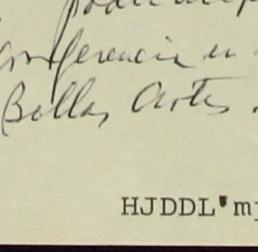 conferencia en
Bellas Artes.
HJDDL'mj